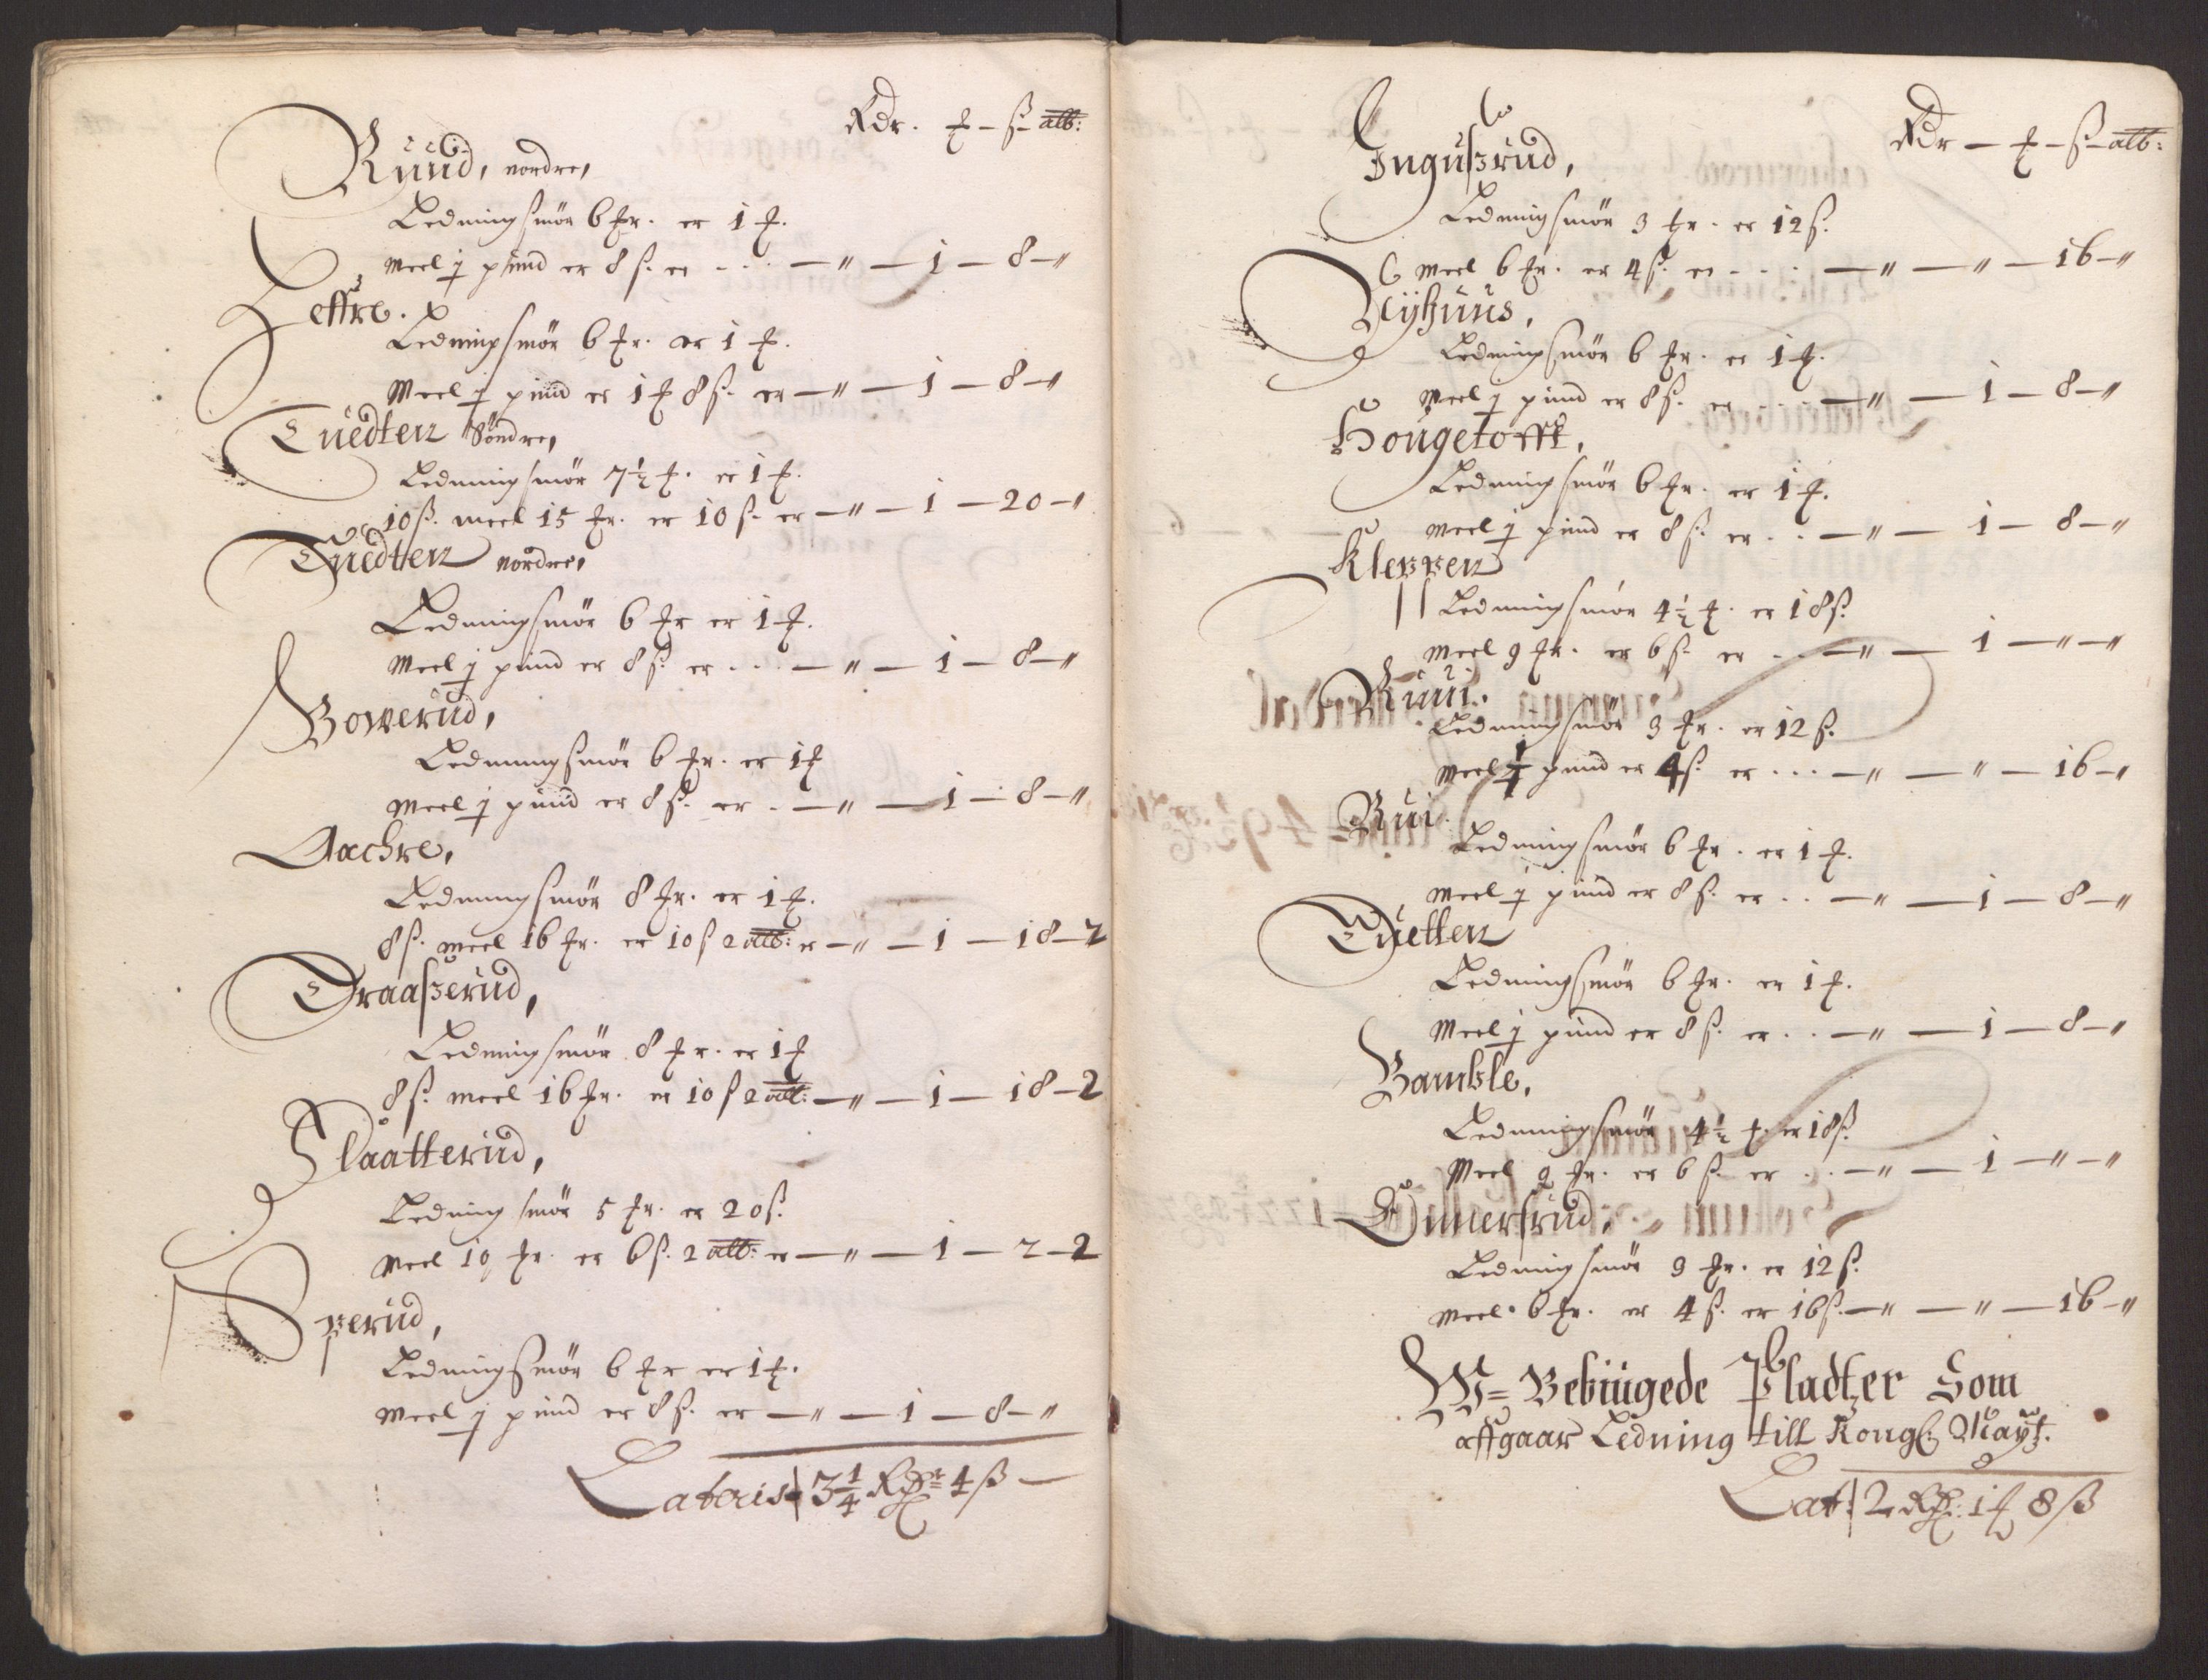 Rdr. ℔ – ß – alb:
Ruud, nordre,
Ledningsmör 6 ℔r. er 1 ℔.
Meel j pund er 8 ß. er - . . . — " — 1 — 8 — "
effre.
Ledningsmör 6 ℔r. er 1 ℔.
Meel j pund er 1 ℔ 8 ß. er — " — 1 — 8 — "
Tuedten Söndre,
Ledningsmör 7½ ℔. er 1 ℔.
10 ß. meel 15 ℔r. er 10 ß. er — " — 1 — 20 — "
Tuedten nordre,
Ledningsmör 6 ℔r er 1 ℔.
Meel j pund er 8 ß. er . . . — " — 1 — 8 — "
Bowerud,
Ledningsmör 6 ℔r. er 1 ℔
Meel j pund er 8 ß. er . — " — 1 — 8 — "
Aachre,
Ledningsmör 8 ℔r. er 1 ℔.
8 ß. meel 16 ℔r. er 10 ß 2 alb: er — " — 1 — 18 — 2
Traaßerud,
Ledningsmör 8 ℔r. er 1 ℔
8 ß. meel 16 ℔r. er 10 ß 2 alb: — " — 1 — 18 — 2
Slaatterud,
Ledningsmör 5 ℔r. er 20 ß.
Meel 10 ℔r. er 6 ß. 2 alb: er — " — 1 — 2 — 2
Operud,
Ledningsmör 6 ℔r er 1 ℔.
Meel j pund er 8 ß. er — " — 1 — 8 — "
Lateris 3¼ Rdr 4 ß —
Rdr — ℔ – ß – alb:
Ingußrud,
Ledningsmör 3 ℔r. er 12 ß.
Meel 6 ℔r. er 4 ß. er - . . . — " — " — 16 — "
Nyhuus,
Ledningsmör 6 ℔r. er 1 ℔.
Meel j pund er 8 ß. er . . . — " — 1 — 8 — "
Hougetorff,
Ledningsmör 6 ℔r. er 1 ℔.
Meel j pund er 8 ß. er . . — " — 1 — 8 — "
Kleppen
Ledningsmör 4½ ℔. er 18 ß.
Meel 9 ℔r. er 6 ß. er . . — " — 1 — " — "
Ruui.
Ledningsmör 3 ℔r. er 12 ß.
Meel ¼ pund er 4 ß. er . . . — " — " — 16 — "
Rui.
Ledningsmör 6 ℔r. er 1 ℔.
Meel j pund er 8 ß. er . . — " — 1 — 8 — "
Tuetten
Ledningsmör 6 ℔r. er 1 ℔.
Meel j pund er 8 ß. er . . — " — 1 — 8 — "
Bamble,
Ledningsmör 4½ ℔. er 18 ß.
Meel 9 ℔r. er 6 ß. er . . — " — 1 — " — "
Gunersrud,
Ledningsmör 3 ℔r. er 12 ß.
Meel. 6 ℔r. er 4 ß. er 16 ß. — " — " — 16 — "
W= Bebugede Pladtzer Som
affgaar Ledning till Kongl: Mayt.
Lat: 2 Rd: 1 ℔ 8 ß